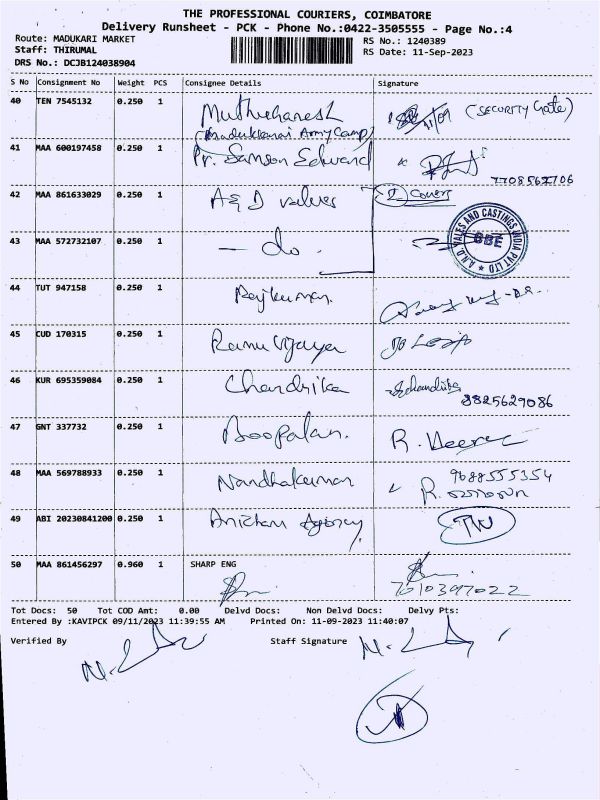 THE PROFESSIONAL COURIERS, COIMBATORE
Delivery Runsheet - PCK - Phone No.:0422-3505555 - Page No.:4
Route: MADUKARI MARKET
RS No.: 1240389
Staff: THIRUMAL
RS Date: 11-Sep-2023
DRS No.: DCJB124038904
S No Consignment No Weight PCS Consignee Details Signature
40 TEN 7545132 0.250 1 Muthuhanesh 11/09 (SECURITY Gate)
(Madukkarai Army Camp)
41 MAA 600197458 0.250 1 Pr. Samson Edward
7708562706
42 MAA 861633029 0.250 1 A & D valves 2 Covers
43 MAA 572732107 0.250 1 - do.
A.N.D. VALES AND CASTINGS INDIA PVT LTD
CBE
44 TUT 947158 0.250 1 Rajkumar.
45 CUD 170315 0.250 1 Ramu Vijaya
46 KUR 695359084 0.250 1 Chandrika Schandrika
8825629086
47 GNT 337732 0.250 1 Boopalan. R. Veera
48 MAA 569788933 0.250 1 Nandhakumar 9688555354
R.
49 ABI 20230841200 0.250 1 Agency
50 MAA 861456297 0.960 1 SHARP ENG
7010397022
Tot Docs: 50 Tot COD Amt: 0.00 Delvd Docs: Non Delvd Docs: Delvy Pts:
Entered By :KAVIPCK 09/11/2023 11:39:55 AM Printed On: 11-09-2023 11:40:07
Verified By Staff Signature